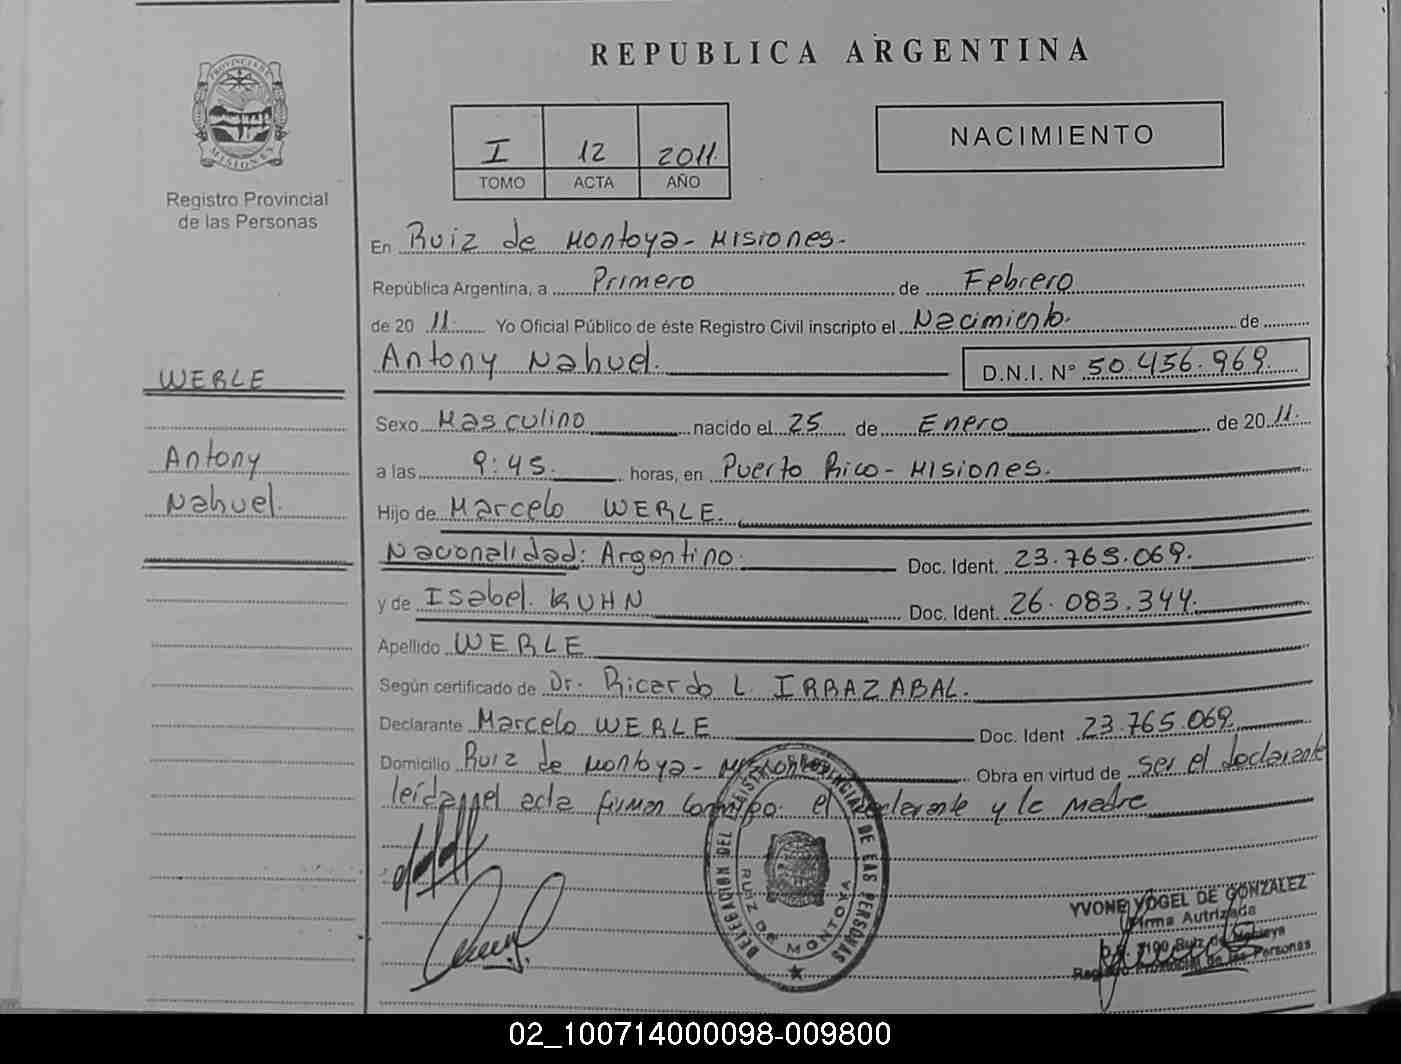 REPUBLICA ARGENTINA
PROVINCIA DE
MISIONES
Registro Provincial
de las Personas
I 12 2011
TOMO ACTA AÑO
NACIMIENTO
En Ruiz de Montoya - Misiones.
República Argentina, a Primero de Febrero
de 20 11 Yo Oficial Público de éste Registro Civil inscripto el Nacimiento. de
Antony Nahuel. D.N.I. N° 50.456.969.
WERLE
Antony
Nahuel.
Sexo Masculino nacido el 25 de Enero de 20 11.
a las 9:45. horas, en Puerto Rico - Misiones.
Hijo de Marcelo WERLE.
Nacionalidad: Argentino. Doc. Ident. 23.765.069.
y de Isabel KUHN Doc. Ident. 26.083.344.
Apellido WERLE
Según certificado de Dr. Ricardo L IRRAZABAL.
Declarante Marcelo WERLE Doc. Ident 23.765.069
Domicilio Ruiz de Montoya - Misiones Obra en virtud de ser el declarante
leída el acta firman conmigo el declarante y la madre
DELEGACION DEL REGISTRO PROVINCIAL DE LAS PERSONAS
RUIZ DE MONTOYA
YVONE VOGEL DE GONZALEZ
Firma Autrizada
Ruiz de Montoya
Registro Provincial de las Personas
02_100714000098-009800